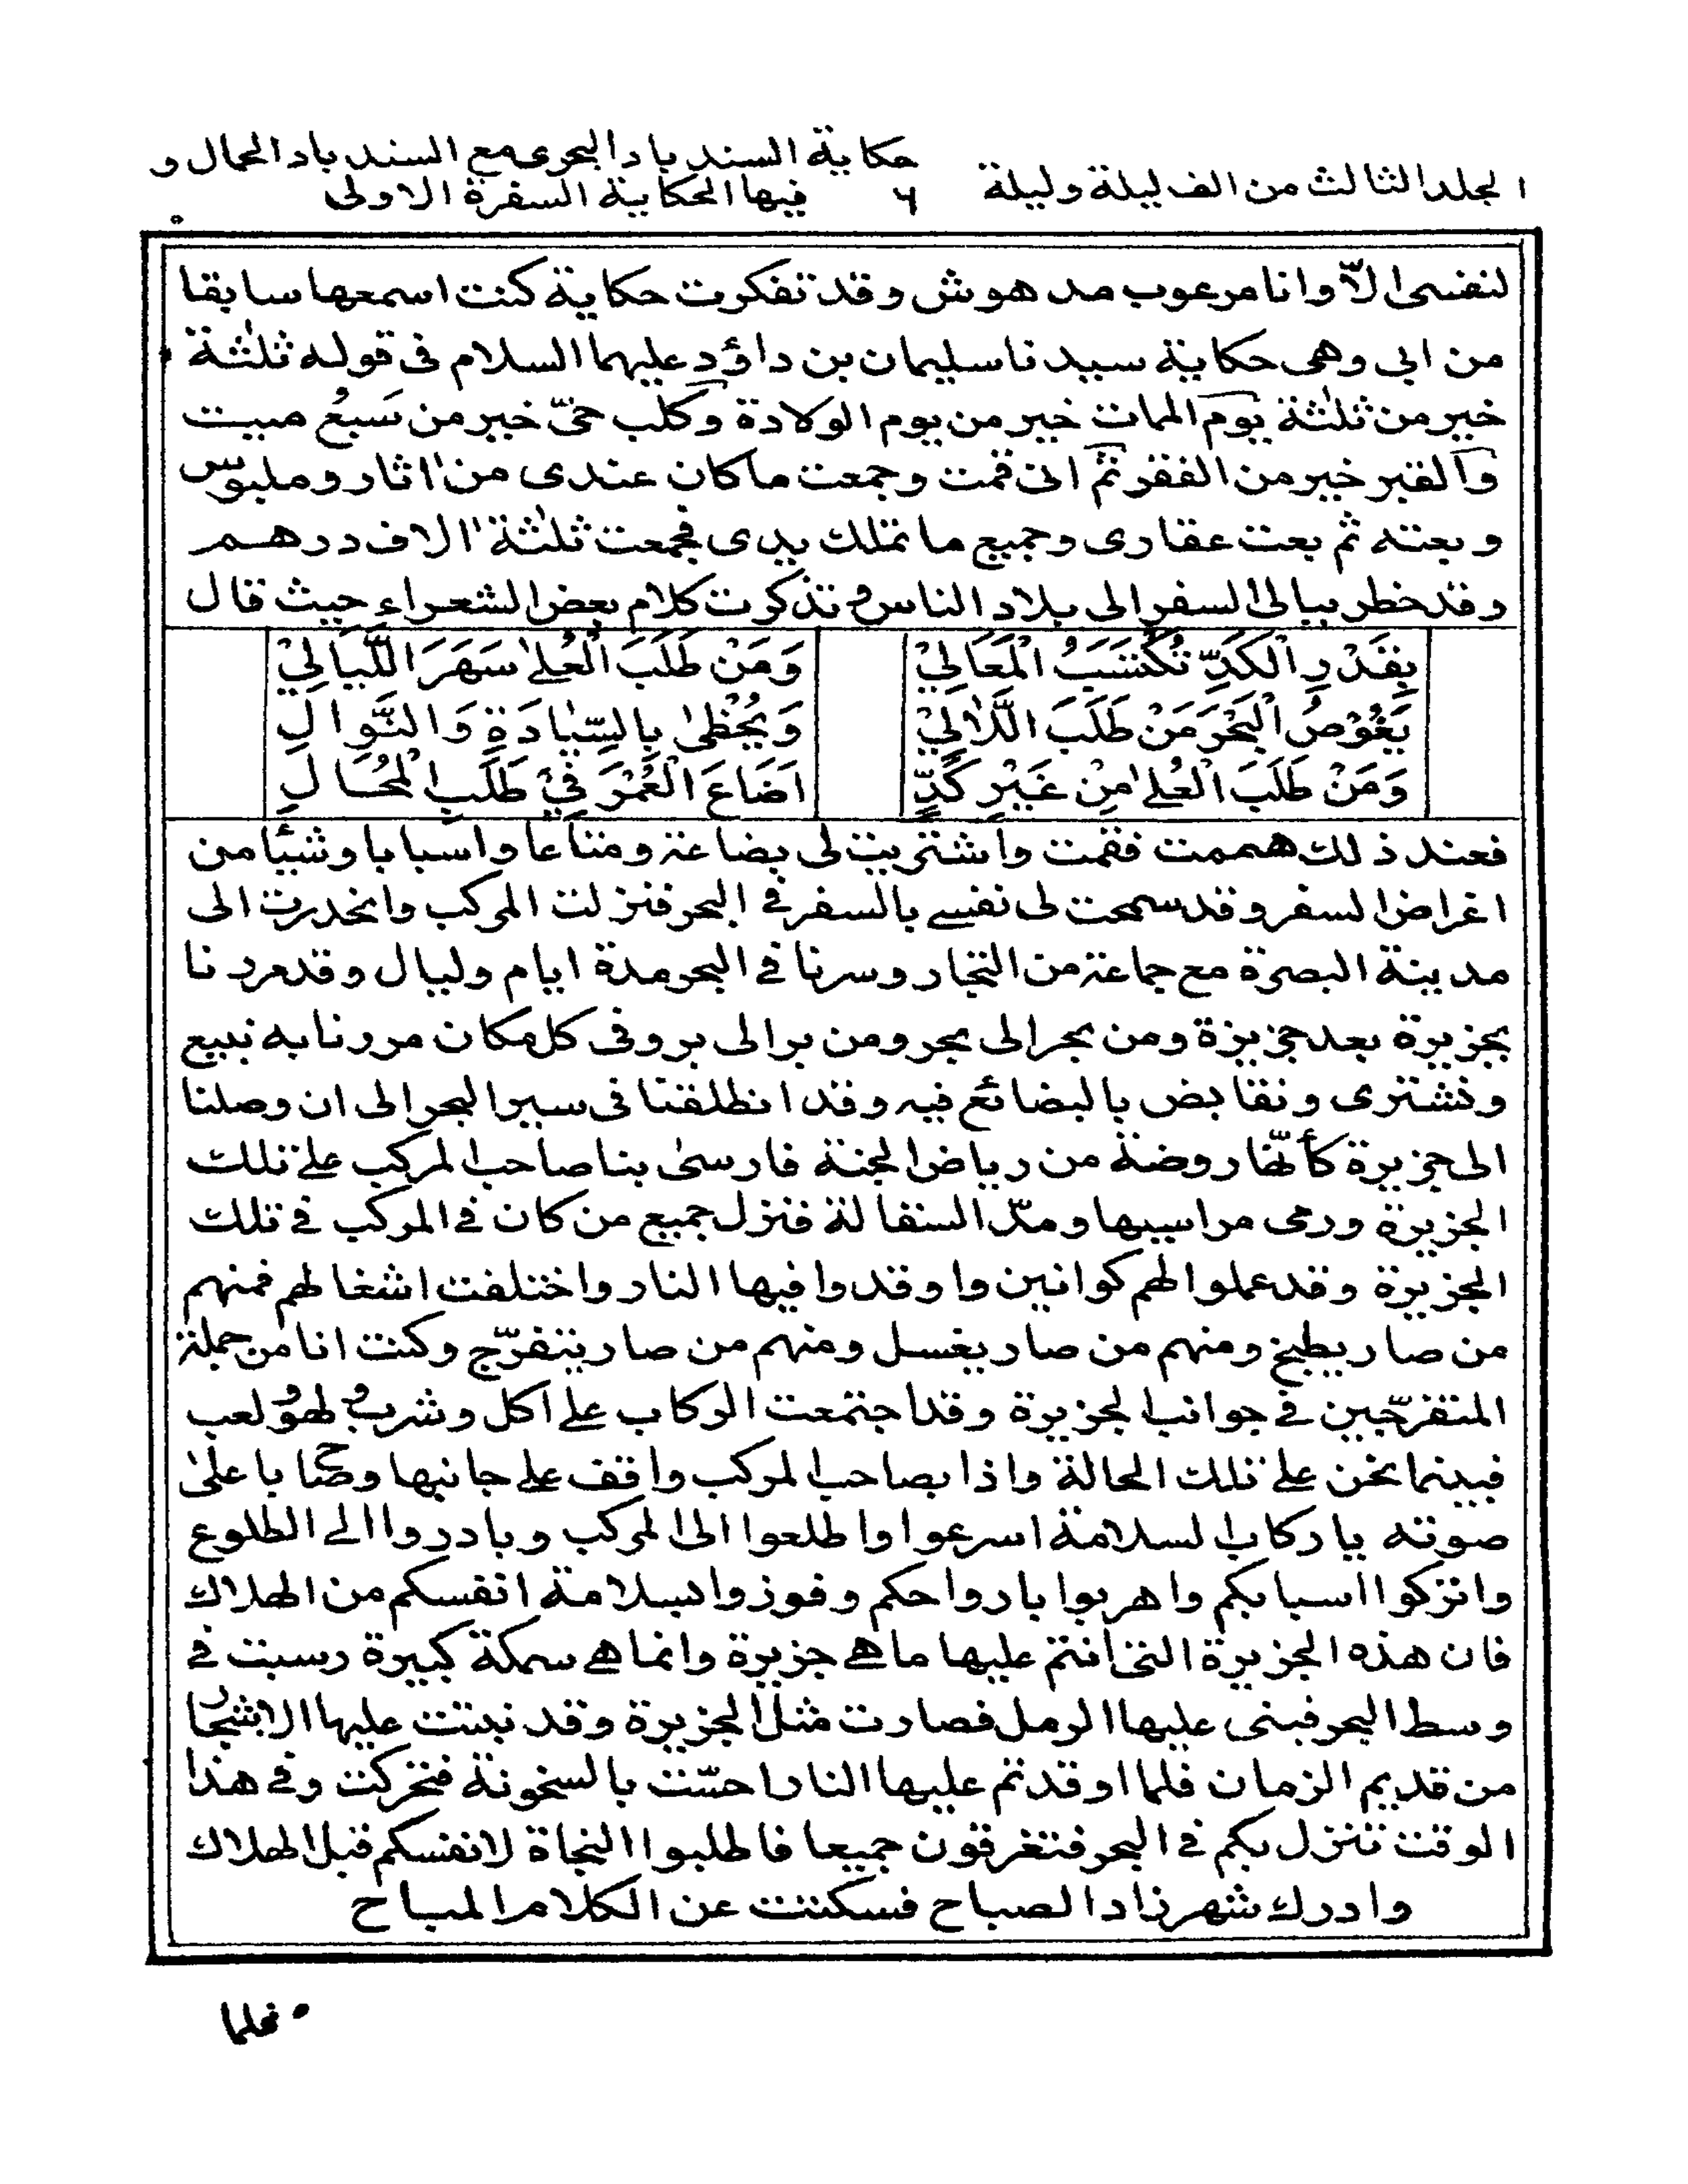 المجلد الثالث من الف ليلة وليلة
٦
حكاية السندباد البحرى مع السندباد الحمال و
فيها الحكاية السفرة الاولى
لنفسى الّا وانا مرعوب مدهوش وقد تفكرت حكاية كنت اسمعها سابقا
من ابى وهى حكاية سيدنا سليمان بن داؤد عليهما السلام فى قوله ثلٰثة
خير من ثلٰثة يوم الممات خير من يوم الولادة وكلب حىّ خير من سَبعُ ميت
والقبر خير من الفقر ثم انى قمت وجمعت ما كان عندى من اثار وملبوس
وبعته ثم بعت عقارى وجميع ما تملك يدى فجمعت ثلٰثة الاف درهم
وقد خطر ببالى السفر الى بلاد الناس وتذكرت كلام بعض الشعراء حيث قال
بِقَدْرِ الْكَدِّ تُكْتَسَبُ الْمَعَالِيْ وَمَنْ طَلَبَ الْعُلىٰ سَهَرَ اللَّيَالِيْ
يَغُوْصُ الْبَحْرَ مَنْ طَلَبَ اللَّاٰلِيْ وَيُحْظٰى بِالسِّيَادَةِ وَالنَّوَالِ
وَمَنْ طَلَبَ الْعُلىٰ مِنْ غَيْرِ كَدٍّ اَضَاعَ الْعُمْرَ فِيْ طَلَبِ الْمُحَالِ
فعند ذلك هممت فقمت واشتريت لى بضاعة ومتاعا واسبابا وشيأ من
اغراض السفر وقد سمحت لى نفسے بالسفر فے البحر فنزلت المركب وانحدرت الى
مدينة البصرة مع جماعة من التجار وسرنا فے البحر مدة ايام وليال وقد مررنا
بجزيرة بعد جزيزة ومن بحر الى بحر ومن بر الى بر وفى كل مكان مررنا به نبيع
ونشترى ونقابض بالبضائع فيه وقد انطلقنا فى سير البحر الى ان وصلنا
الى جزيرة كأنّها روضة من رياض الجنة فارسىٰ بنا صاحب المركب علے تلك
الجزيرة ورمى مراسيها ومدّ السقالة فنزل جميع من كان فے المركب فے تلك
الجزيرة وقد عملوا لهم كوانين واوقدوا فيها النار واختلفت اشغالهم فمنهم
من صار يطبخ ومنهم من صار يغسل ومنهم من صار يتفرّج وكنت انا من جملة
المتفرّجين فے جوانب الجزيرة وقد اجتمعت الركاب علے اكل وشرب ولهو ولعب
فبينما نحن علے تلك الحالة واذا بصاحب المركب واقف علے جانبها وصاح باعلىٰ
صوته يا ركاب السلامة اسرعوا واطلعوا الى المركب وبادروا الے الطلوع
واتركوا اسبابكم واهربوا بارواحكم وفوزوا بسلامة انفسكم من الهلاك
فان هذه الجزيرة التى انتم عليها ما هے جزيرة وانما هے سمكة كبيرة رسبت فے
وسط البحر فبنى عليها الرمل فصارت مثل الجزيرة وقد نبتت عليها الاشجار
من قديم الزمان فلما اوقدتم عليها النار احسّت بالسخونة فتحركت وفے هذا
الوقت تنزل بكم فے البحر فتغرقون جميعا فاطلبوا النجاة لانفسكم قبل الهلاك
وادرك شهرزاد الصباح فسكتت عن الكلام المباح
فلما